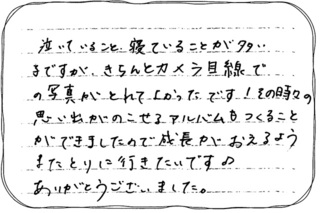 泣いていること、寝ていることが多い
まですが、きちんとカメラ目線で
の写真がとれてよかったです！その時々の
思い出がのこせるアルバムもつくること
ができましたので成長がおえるよう
またとりに行きたいです♪
ありがとうございました。